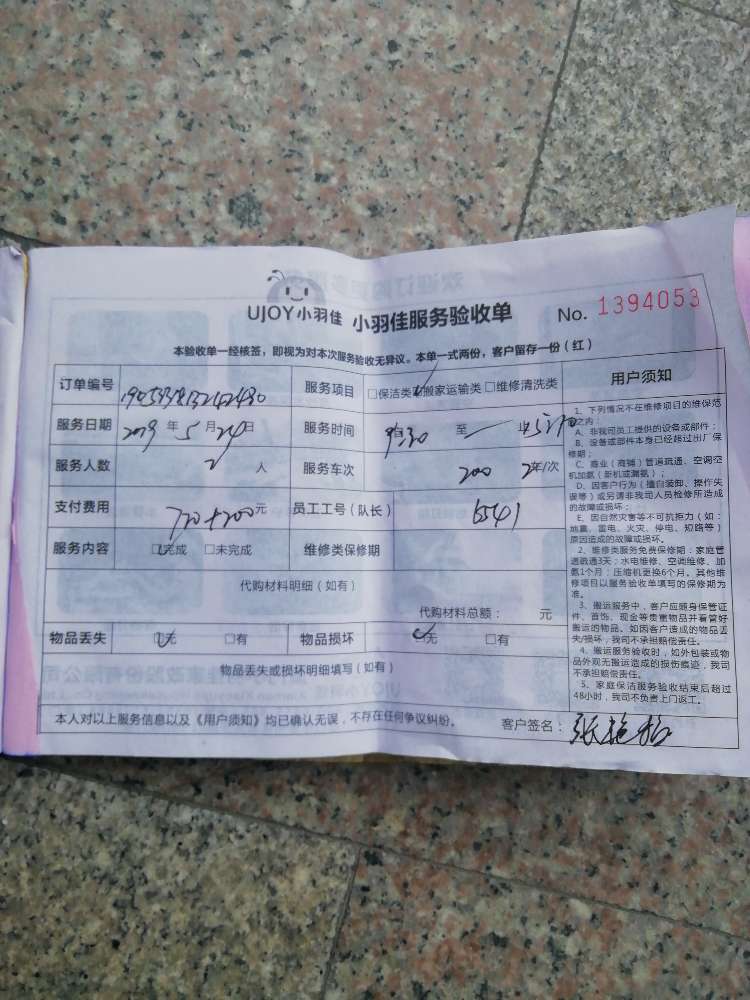 UJOY小羽佳 小羽佳服务验收单 No. 1394053
本验收单一经核签，即视为对本次服务验收无异议。本单一式两份，客户留存一份（红）
订单编号 服务项目 □保洁类 ☑搬家运输类 □维修清洗类
服务日期 2019年5月24日 服务时间 9:30 至
服务人数 2人 服务车次 200 2车/次
支付费用 720+200元 员工工号（队长） 6541
服务内容 ☑完成 □未完成 维修类保修期
代购材料明细（如有）
代购材料总额： 元
物品丢失 ☑无 □有 物品损坏 ☑无 □有
物品丢失或损坏明细填写（如有）
本人对以上服务信息以及《用户须知》均已确认无误，不存在任何争议纠纷。 客户签名：
用户须知
1、下列情况不在维修项目的维保范
之内：
A、非我司员工提供的设备或部件；
B、设备或部件本身已经超过出厂保
修期；
C、商业（商铺）管道疏通、空调空
机加氨（新机或漏氨）；
D、因客户行为（擅自装卸、操作失
误等）或另请非我司人员检修所造成
的故障或损坏；
E、因自然灾害等不可抗拒力（如：
地震、雷电、火灾、停电、短路等）
原因造成的故障或损坏。
2、维修类服务免费保修期：家庭管
道疏通3天；水电维修、空调维修、加
氨1个月；压缩机更换6个月。其他维
修项目以服务验收单填写的保修期为
准。
3、搬运服务中，客户应随身保管证
件、首饰、现金等贵重物品并看管好
搬运的物品。如因客户造成的物品丢
失/损坏，我司不承担赔偿责任。
4、搬运服务验收时，如外包装或物
品外观无搬运造成的损伤痕迹，我司
不承担赔偿责任。
5、家庭保洁服务验收结束后超过
48小时，我司不负责上门返工。